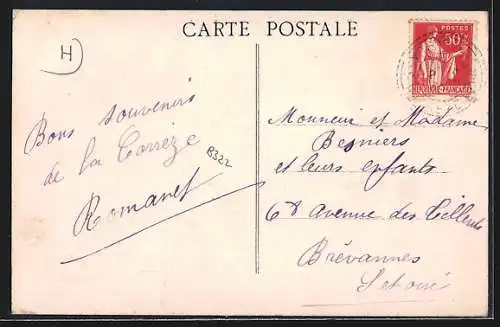 CARTE POSTALE
H
POSTES
50c
RÉPUBLIQUE FRANÇAISE
Bons souvenirs
de la Corrèze
8322
Romanet
Monsieur et Madame
Besniers
et leurs enfants
68 avenue des Tilleuls
Brévannes
S et oise